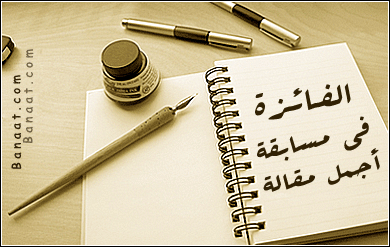 الفائزة
فى مسابقة
أجمل مقالة
Banaat.com
Banaat.com